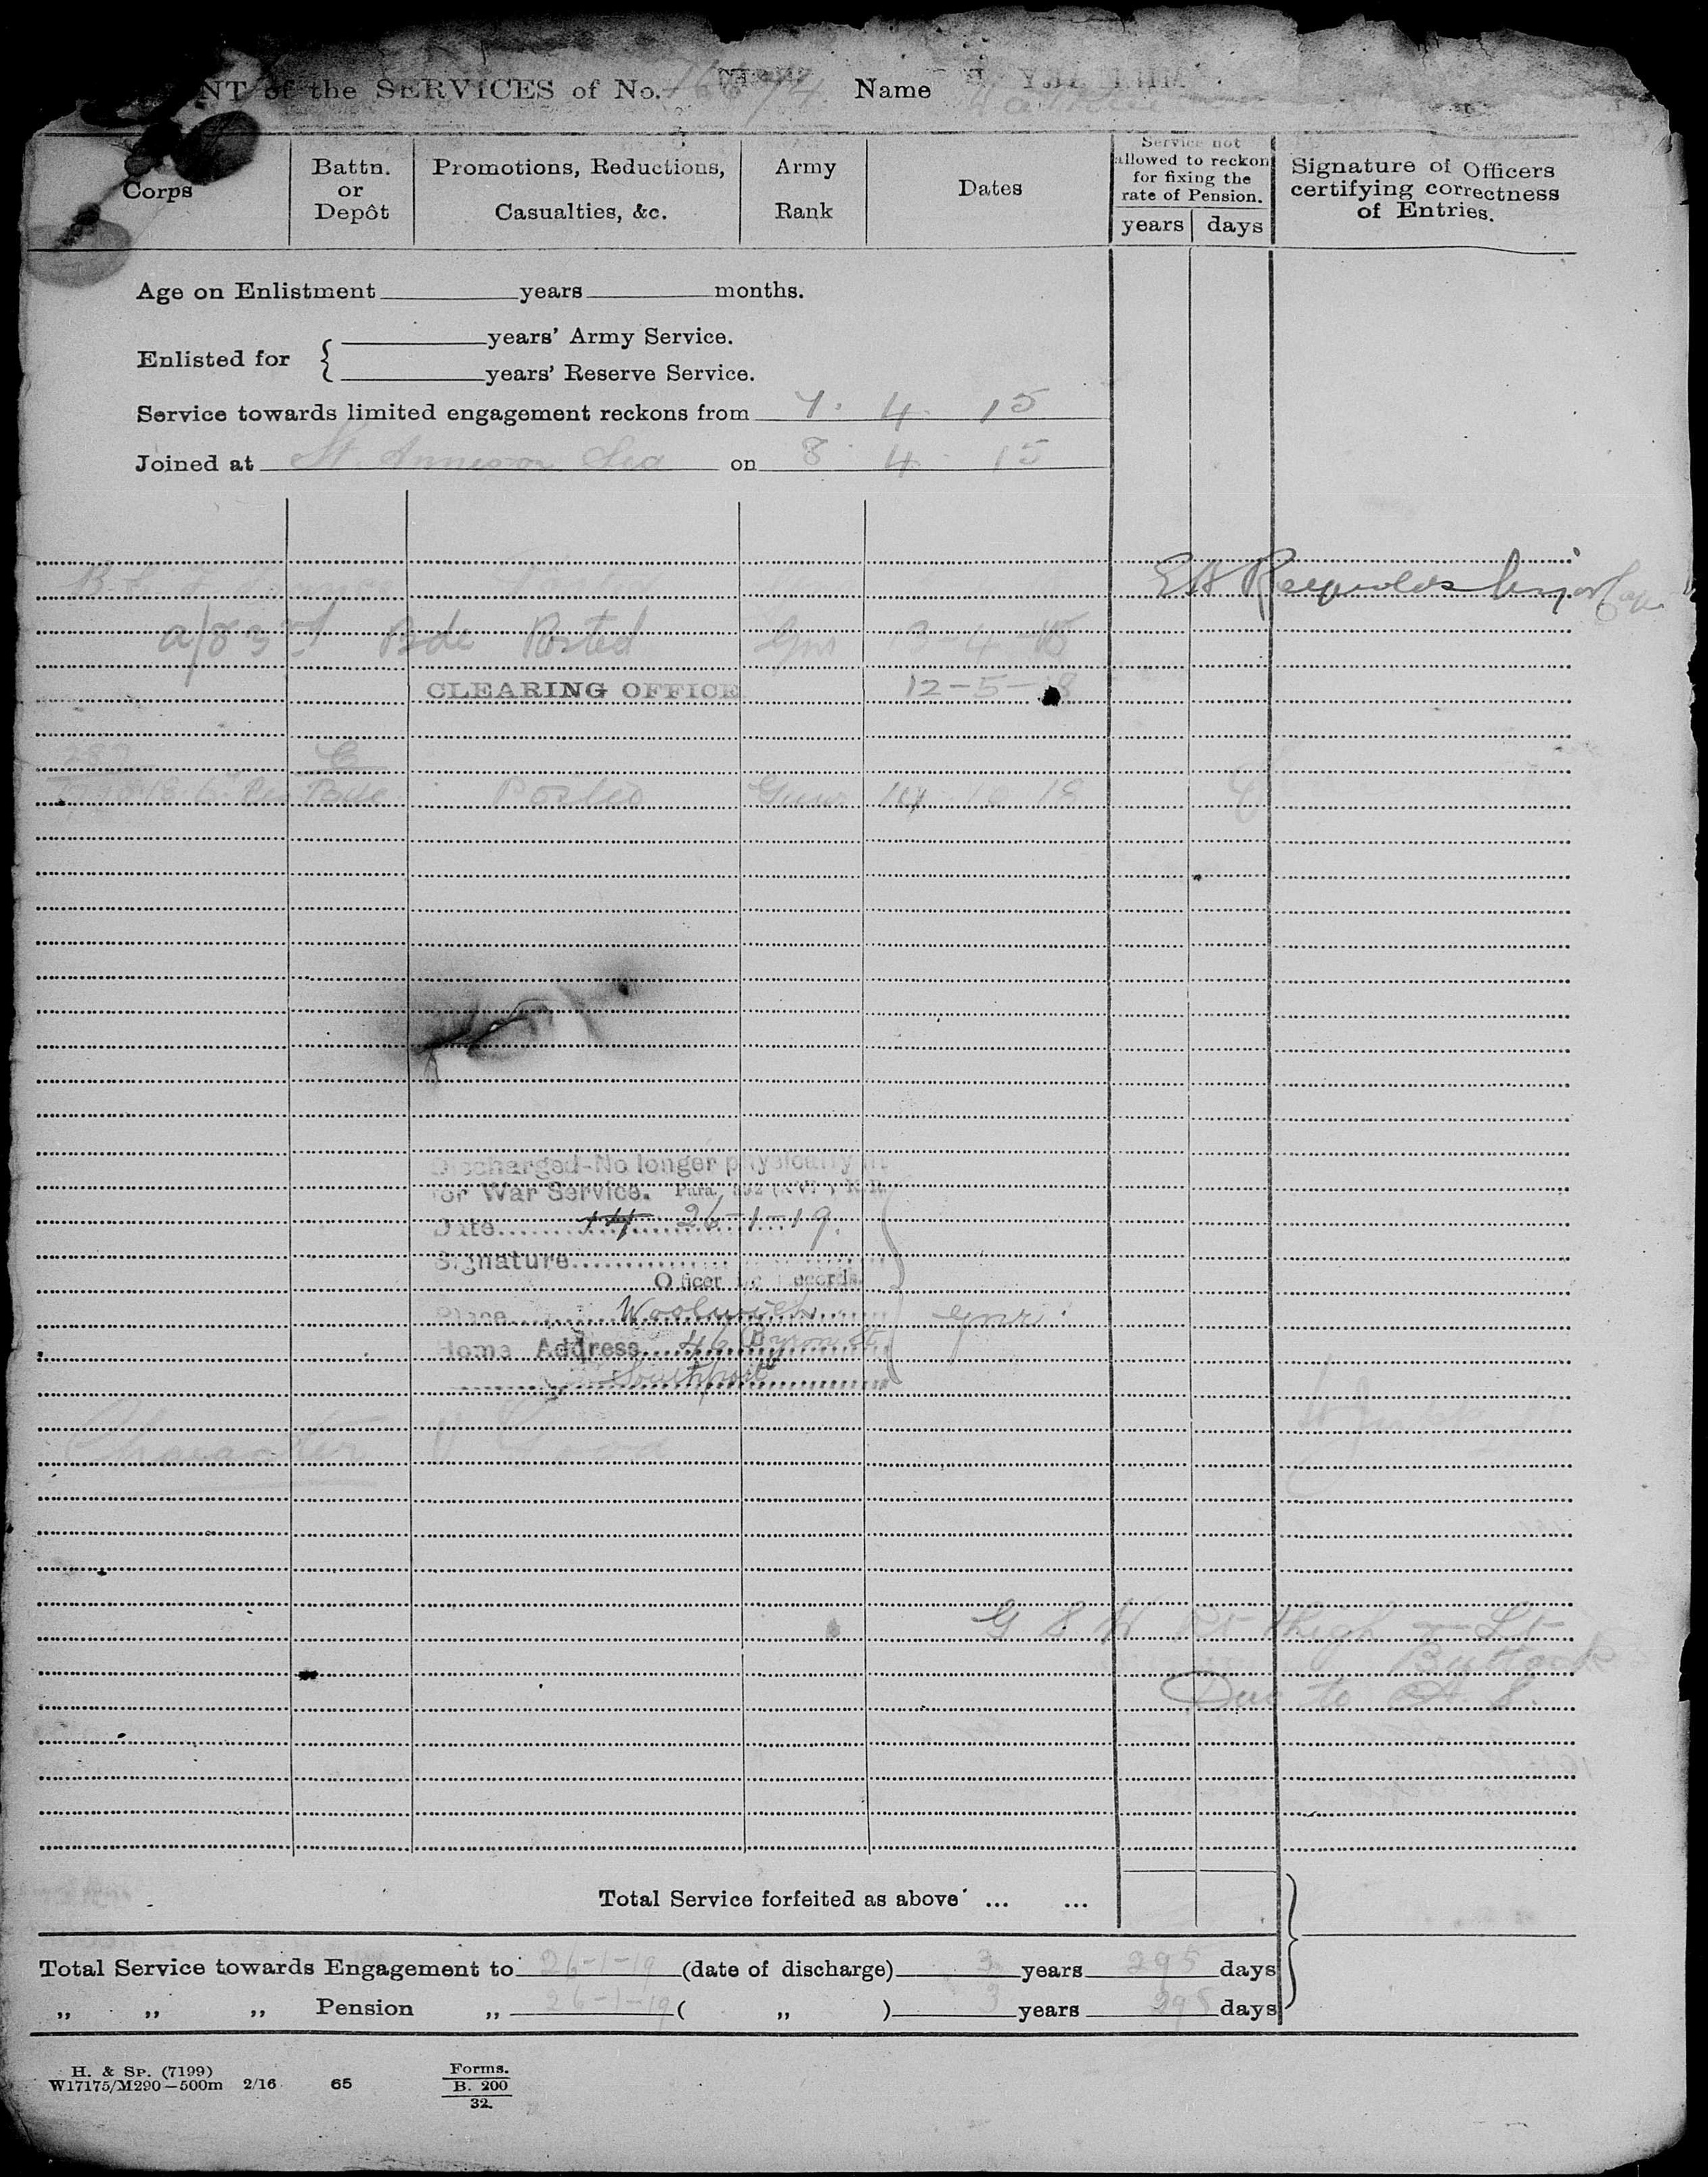 NT of the SERVICES of No. 76674 Name
Corps
Battn. or Depôt
Promotions, Reductions, Casualties, &c.
Army Rank
Dates
Service not allowed to reckon for fixing the rate of Pension.
years days
Signature of Officers certifying correctness of Entries.
Age on Enlistment years months.
Enlisted for { years' Army Service.
years' Reserve Service.
Service towards limited engagement reckons from 7. 4. 15
Joined at St. Annes on Sea on 8 4 15
Posted
E H Reynolds Major
Bde Posted Gnr 13-4-
CLEARING OFFICE 12-5-18
C
Bde Posted Gunr
Discharged-No longer physically fit
for War Service. Para. 392 (XVI) K.R.
Date 26-1-19.
Signature
Officer i/c Records.
Place Woolwich Gnr.
Home Address 46 Byron St
Southport
Character V Good
G S W Rt Thigh - Lt
Buttock
Due to A. S.
Total Service forfeited as above ... ...
Total Service towards Engagement to 26-1-19 (date of discharge) 3 years 295 days
„ „ „ Pension „ 26-1-19 ( „ ) 3 years 295 days
H. & Sp. (7199)
W17175/M290—500m 2/16 65
Forms.
B. 200
32.